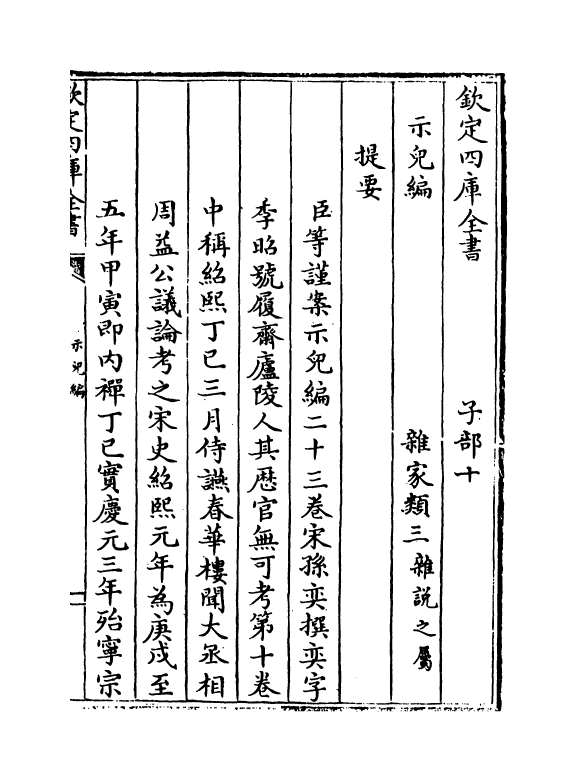 欽定四庫全書　子部十
示兒編　雜家類三雜說之屬
提要
臣等謹案示兒編二十三卷宋孫奕撰奕字
季昭號履齋廬陵人其歷官無可考第十卷
中稱紹熙丁巳三月侍讌春華樓聞大丞相
周益公議論考之宋史紹熙元年為庚戌至
五年甲寅即內禪丁巳實慶元三年殆寧宗
欽定四庫全書
示兒編
一